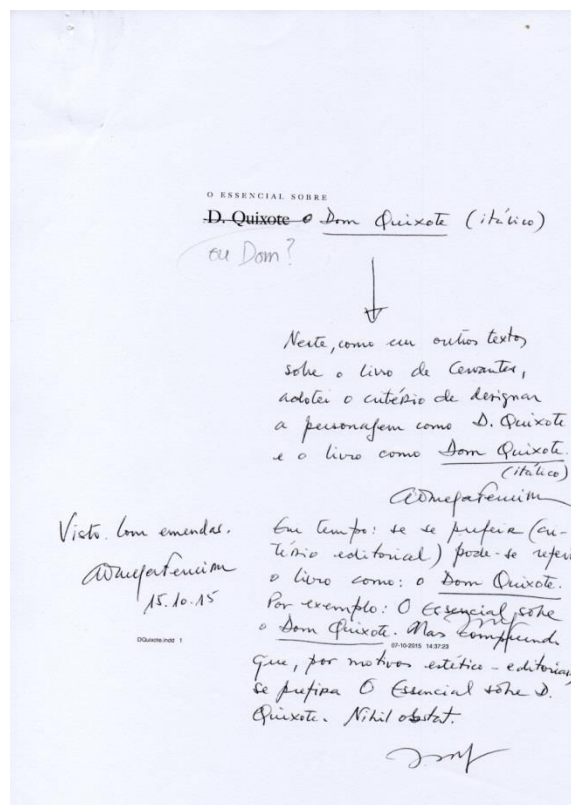 O ESSENCIAL SOBRE
D. Quixote o Dom Quixote (itálico)
ou Dom?
Neste, como em outros textos
sobre o livro de Cervantes,
adotei o critério de designar
a personagem como D. Quixote
e o livro como Dom Quixote.
(itálico)
AOmegaFerreira
Visto. Com emendas.
AOmegaFerreira
15.10.15
Em tempo: se se preferir (cri-
tério editorial) pode-se referir
o livro como: o Dom Quixote.
Por exemplo: O Essencial sobre
o Dom Quixote. Mas compreendo
que, por motivos estético-editoriais,
se prefira O Essencial sobre D.
Quixote. Nihil obstat.
DQuixote.indd 1
07-10-2015 14:37:23